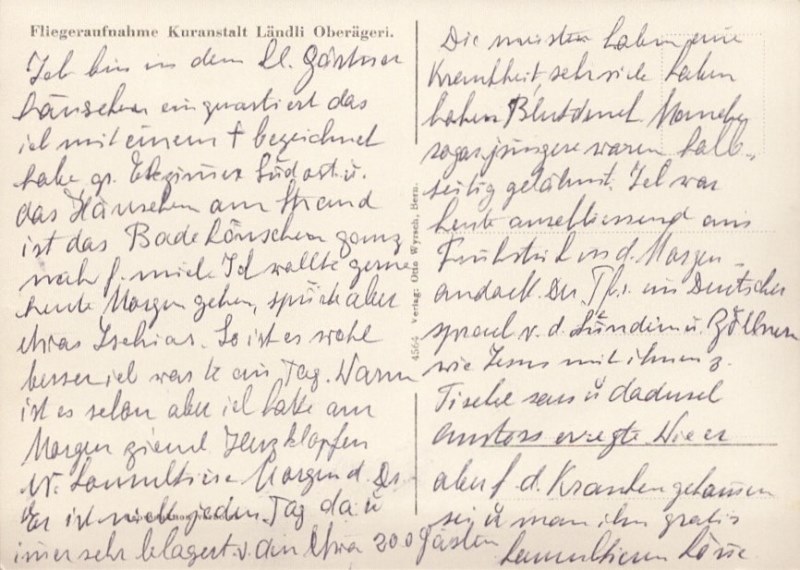 Fliegeraufnahme Kuranstalt Ländli Oberägeri.
Ich bin in dem kl. Gärtner
häuschen einquartiert das
ich mit einem + bezeichnet
habe, gr. Südost u.
das Häuschen am Strand
ist das Badehäuschen ganz
nah f. mich. Ich wollte gerne
heute Morgen gehen, spüre aber
etwas Ischias. So ist es wohl
besser ich warte ein Tag. Warm
ist es schon aber ich hatte am
Morgen ziemel Herzklopfen
Morgen d. Dr.
Er ist nicht jeden Tag da u
imer sehr v. den etwa 200 Gästen
4564 Verlag: Otto Wyrsch, Bern.
Die meisten haben eine
Krankheit, sehr viele haben
hohen Blutdruck. Manche
sogar jüngere waren halb-
seitig gelähmt. Ich war
heute anschliessend am
Frühstück in d. Morgen-
andacht. Der ein Deutscher
sprach v. d. Sündern u. Zöllnern
wie Jesus mit ihnen z.
Tische sass u dadurch
anstoss erregte. Wie er
aber f. d. Kranken gekommen
sei u man ihn gratis
konsultieren könne.